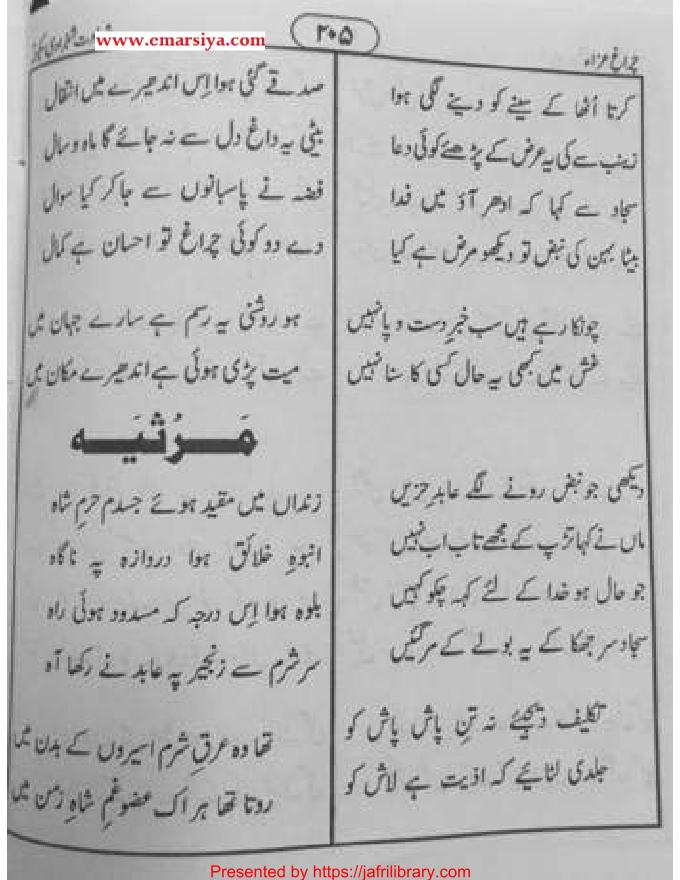 چراغِ عزاء
۲۰۵
www.emarsiya.com
کرتا اُٹھا کے سینے کو دینے لگی ہوا
زینب سے کی یہ عرض کے پڑھئے کوئی دعا
سجاد سے کہا کہ ادھر آؤ میں فدا
بیٹا بہن کی نبض تو دیکھو مرض ہے کیا
چونکا رہے ہیں سب خبرِ دست و پا نہیں
غش میں کبھی یہ حال کسی کا سنا نہیں
دیکھی جو نبض رونے لگے عابدِ حزیں
ماں نے کہا تڑپ کے مجھے تاب اب نہیں
جو حال ہو خدا کے لئے کہہ چکو کہیں
سجاد سر جھکا کے یہ بولے کے مر گئیں
تکلیف دیجیئے نہ تنِ پاش پاش کو
جلدی لٹائیے کہ اذیت ہے لاش کو
صدقے گئی ہوا اِس اندھیرے میں انتقال
بیٹی یہ داغ دل سے نہ جائے گا ماہ و سال
فضہ نے پاسبانوں سے جا کر کیا سوال
دے دو کوئی چراغ تو احسان ہے کمال
ہو روشنی یہ رسم ہے سارے جہان میں
میت پڑی ہوئی ہے اندھیرے مکان میں
مَرثیَہ
زنداں میں مقید ہوئے جسدم حرمِ شاہ
انبوہِ خلائق ہوا دروازہ پہ ناگاہ
بلوہ ہوا اِس درجہ کہ مسدود ہوئی راہ
سر شرم سے زنجیر پہ عابد نے رکھا آہ
تھا وہ عرقِ شرم اسیروں کے بدن میں
روتا تھا ہر اک عضو غمِ شاہِ زمن میں
Presented by https://jafrilibrary.com